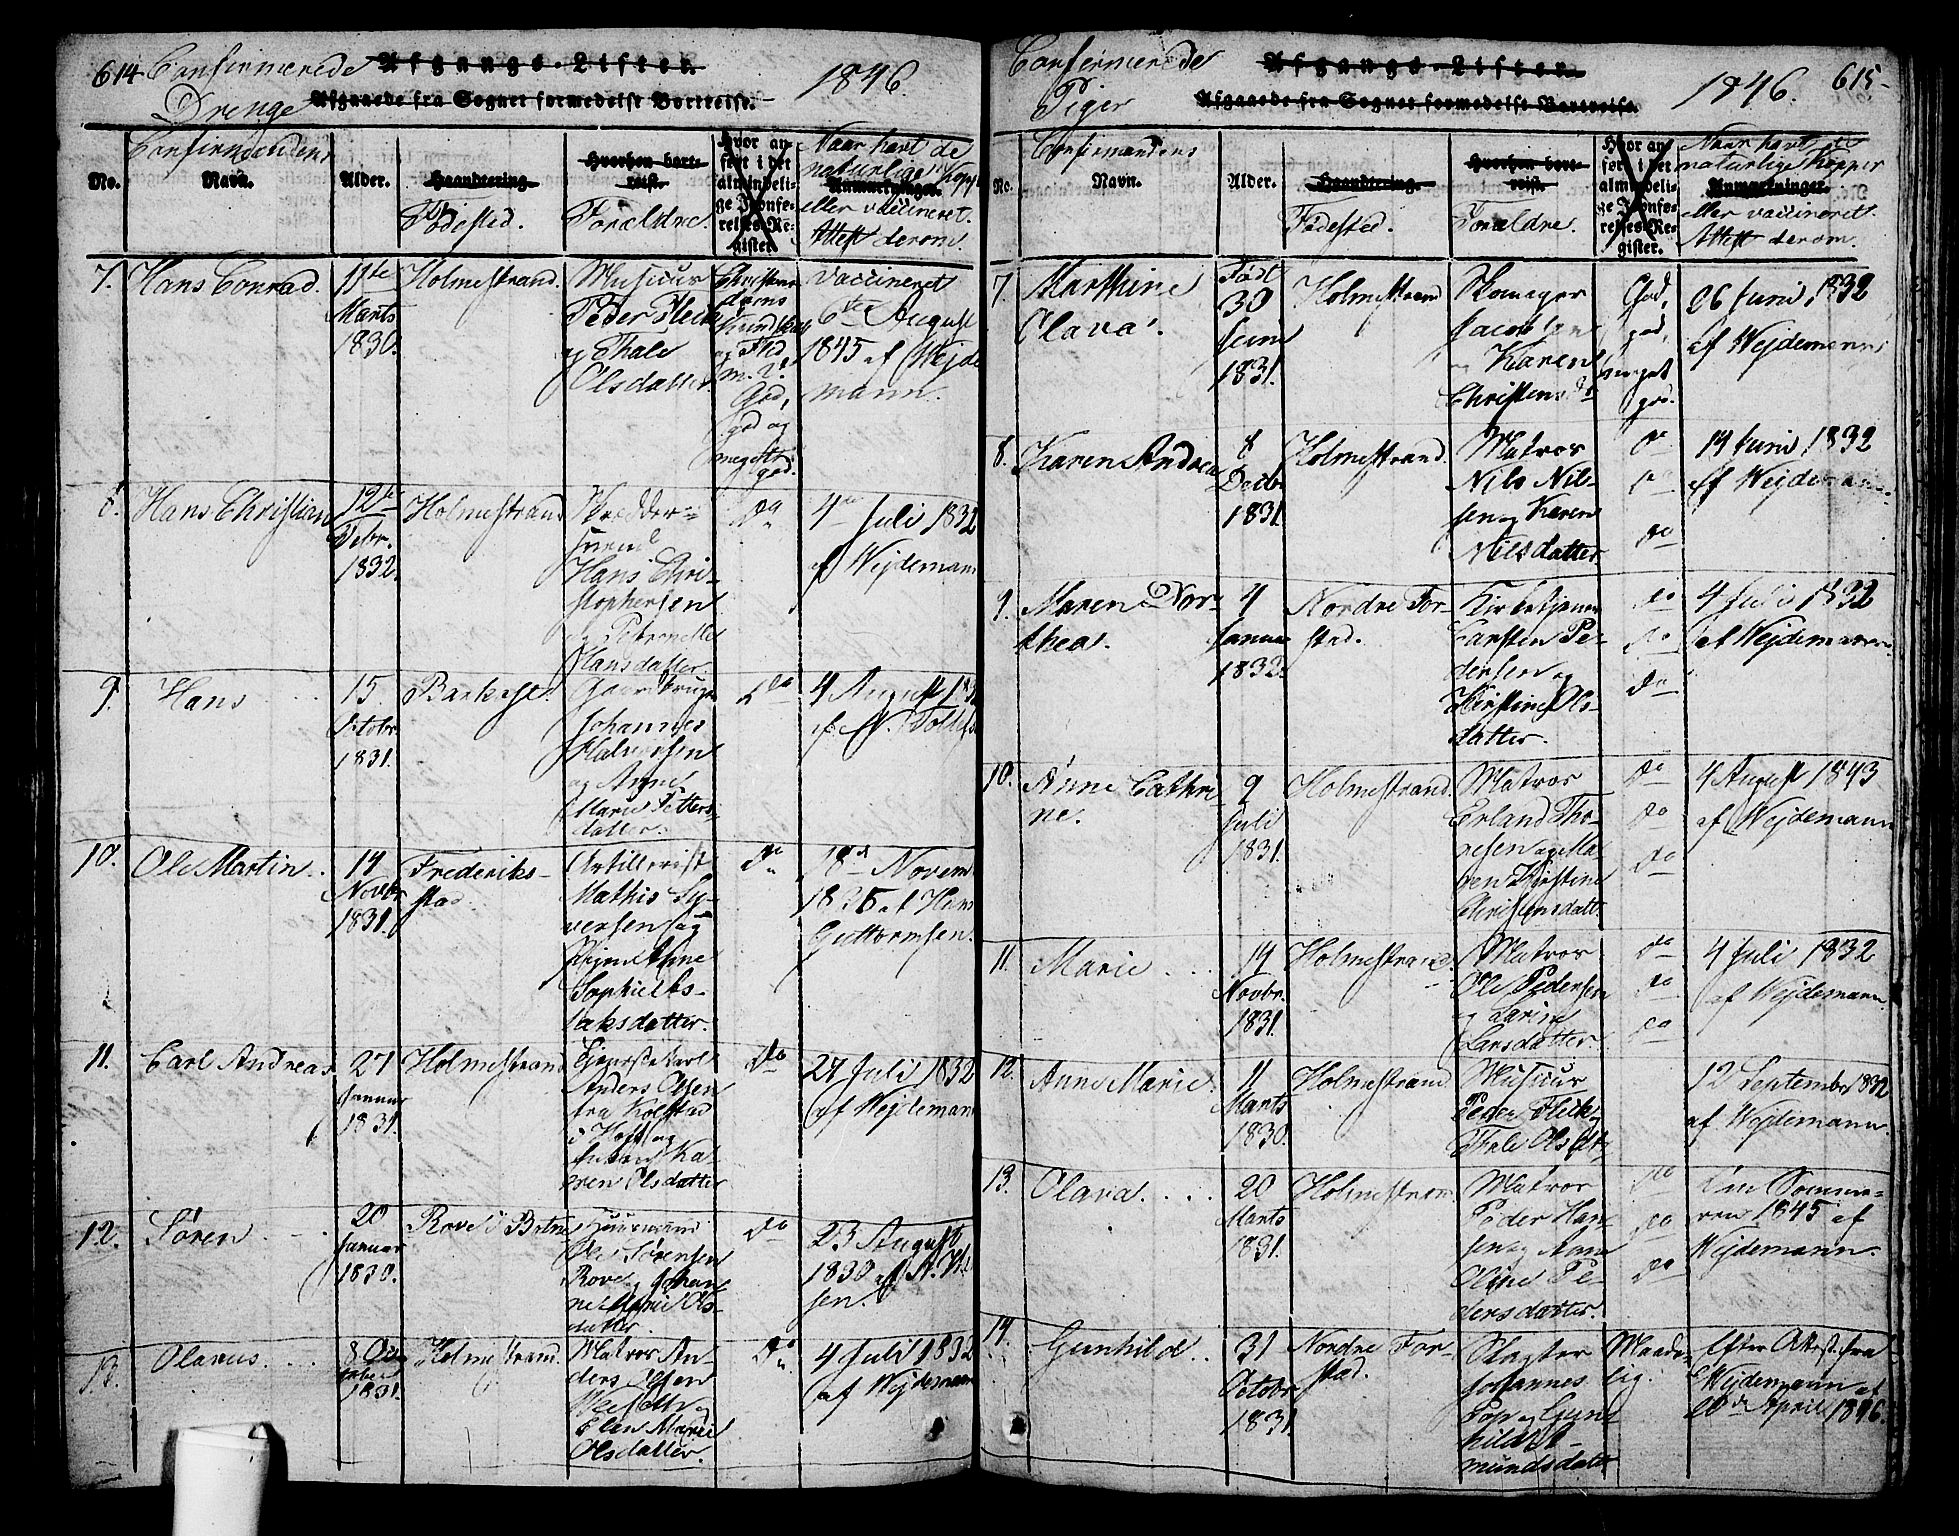 614 Confirmerede
Drenge
Afgangs-Lister.
Afgaaede fra Sognet formedelst Bortreise.
1846.
No.
Confirmandens
Navn.
Alder.
Haandtering.
Fødested.
Hvorhen bort-
reist.
Forældre.
Hvor an-
ført i det
almindeli-
ge Jevnfø-
relses-Re-
gister.
Naar havt de
naturlige Kopper
Anmærkninger.
eller vaccineret.
Attest derom.
7. Hans Conrad.
11te
Marts
1830.
Holmestrand.
Musicus
Peder Fleck
og Thale
Olsdatter
Christen-
doms
Kundskab
og Flid
God,
god og
meget
god.
vaccineret
6te August
1845 af Wejde
mann.
8. Hans Christian
12te
Febr.
1832.
Holmestrand
Skrædder-
svend
Hans Chri-
stophersen
og Petronelle
Hansdatter
do
4de Juli 1832
af Wejdemann
9. Hans
15
Octobr
1831.
Backe
Johannes
Halvorsen
og Anne
Marie Petters-
datter.
do
4 August
af
10. Ole Martin.
14
Novbr
1831.
Frederiks-
stad.
Artillerist
Mathis Sy-
versen og
Sophie
datter.
do
18de Novem
1835 af Hans
Guttormsen.
11. Carl Andreas
27
Januar
1831.
Holmestrand
Tjenestekarl
Anders Olsen
fra Kolstad
i Hoff og
Ka-
ren Olsdatter
do
27 Juli 1832
af Wejdemann
12. Søren
20
Januar
1830.
Rove i Botne
Huusmand
Ole Sørensen
Rove og Johan-
ne Marie Ols-
datter.
do
23 August
1830 af
sen.
13. Olavus
8 Oc-
tober
1831.
Holmestrand.
Matros An-
ders Olsen
og
Elen Marie
Olsdatter.
do
4 Juli 1832
af Wejdemann
Confirmerede
Piger
Afgangs-Lister.
Afgaaede fra Sognet formedelst Bortreise.
1846. 615
No.
Confirmandens
Navn.
Alder.
Haandtering.
Fødested.
Hvorhen bort-
reist.
Forældre.
Hvor an-
ført i det
almindeli-
ge Jevnfø-
relses-Re-
gister.
Naar havt de
naturlige Kopper
Anmærkninger.
eller vaccineret.
Attest derom.
7. Marthine
Olava.
Født
30
Juni
1831.
Holmestrand
Skomager
Jacobsen
og Karen
Christensdr
God,
god,
meget
god.
26 Juni 1832
af Wejdemann
8. Karen Andrea
8
Decbr
1831
Holmestrand.
Matros
Nils Nil-
sen og Karen
Nilsdatter
do
do
do
14 Juni 1832
af Wejdemann.
9. Maren Dor-
thea.
4
Januar
1832.
Nordre For-
stad.
Kirketjener
Carsten Pe-
dersen og
Kirstine Ols-
datter.
do
do
do
4 Juli 1832
af Wejdemann.
10. Anne Cathri-
ne.
9
Juli
1831.
Holmestrand.
Matros
Erland Tho-
resen og Ma-
ren Kirstine
Christensdatt.
do
do
do
4 August 1843
af Wejdemann
11. Marie
14
Novbr.
1831.
Holmestrand.
Matros
Ole Pedersen
og Karine
Larsdatter.
do
do
do
4 Juli 1832
af Wejdemann
12. Anne Marie.
11
Marts
1830.
Holmestrand.
Musicus
Peder Fleck og
Thale Olsdtr
12 September 1832
af Wejdemann.
13. Olava.
20
Marts
1831.
Holmestrand
Matros
Peder Han-
sen og Anne
Oline Pe-
dersdatter.
do
do
do
Om Somme-
ren 1845 af
Wejdemann.
14. Gunhild
31
Octobr
1831.
Nordre For-
stad.
Slagter
Johannes
og Gun-
hild A-
mundsdatter
Maade-
lig.
Efter Attest fra
Wejdemann af
20de April 1846.